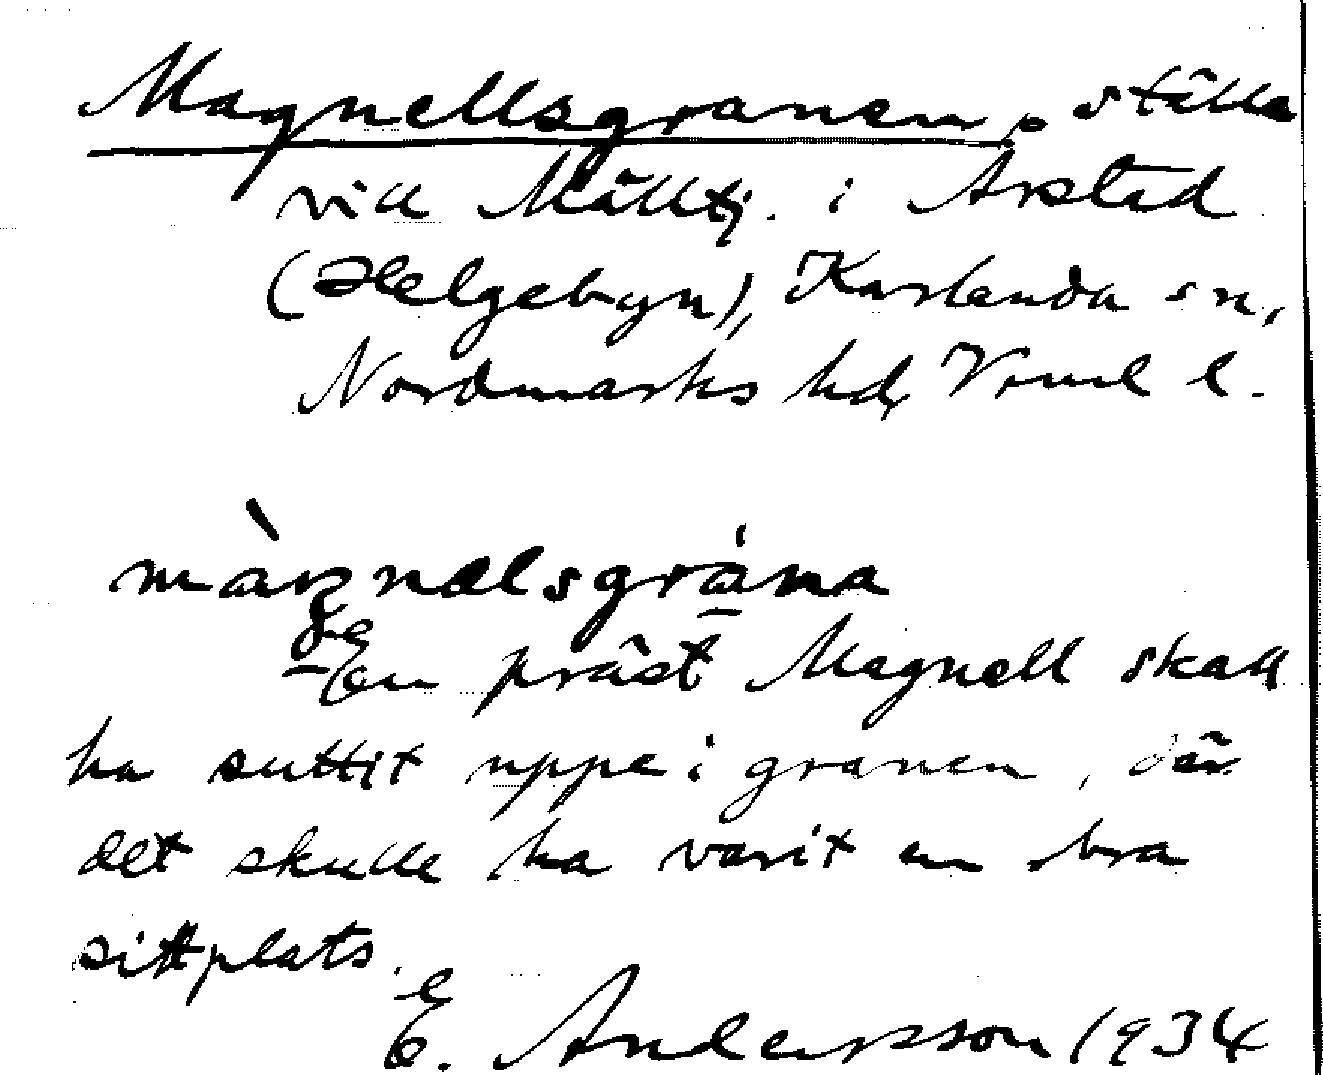 Magnellsgranen, ställe
vid Mälltj. i Årstad
(Helgebyn), Karlanda sn,
Nordmarks hd, Vrml l.
En präst Magnell skall
ha suttit uppe i granen, där
det skulle ha varit en bra
sittplats.
E. Andersson 1934